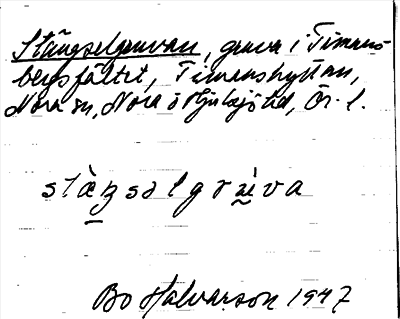 Stängselgruvan, gruva i Timans-
bergsfältet, Timanshyttan,
Nora sn, Nora o Hjulsjö tld, Ör. l.
stàŋsəlgrùva
Bo Halvarson 1947